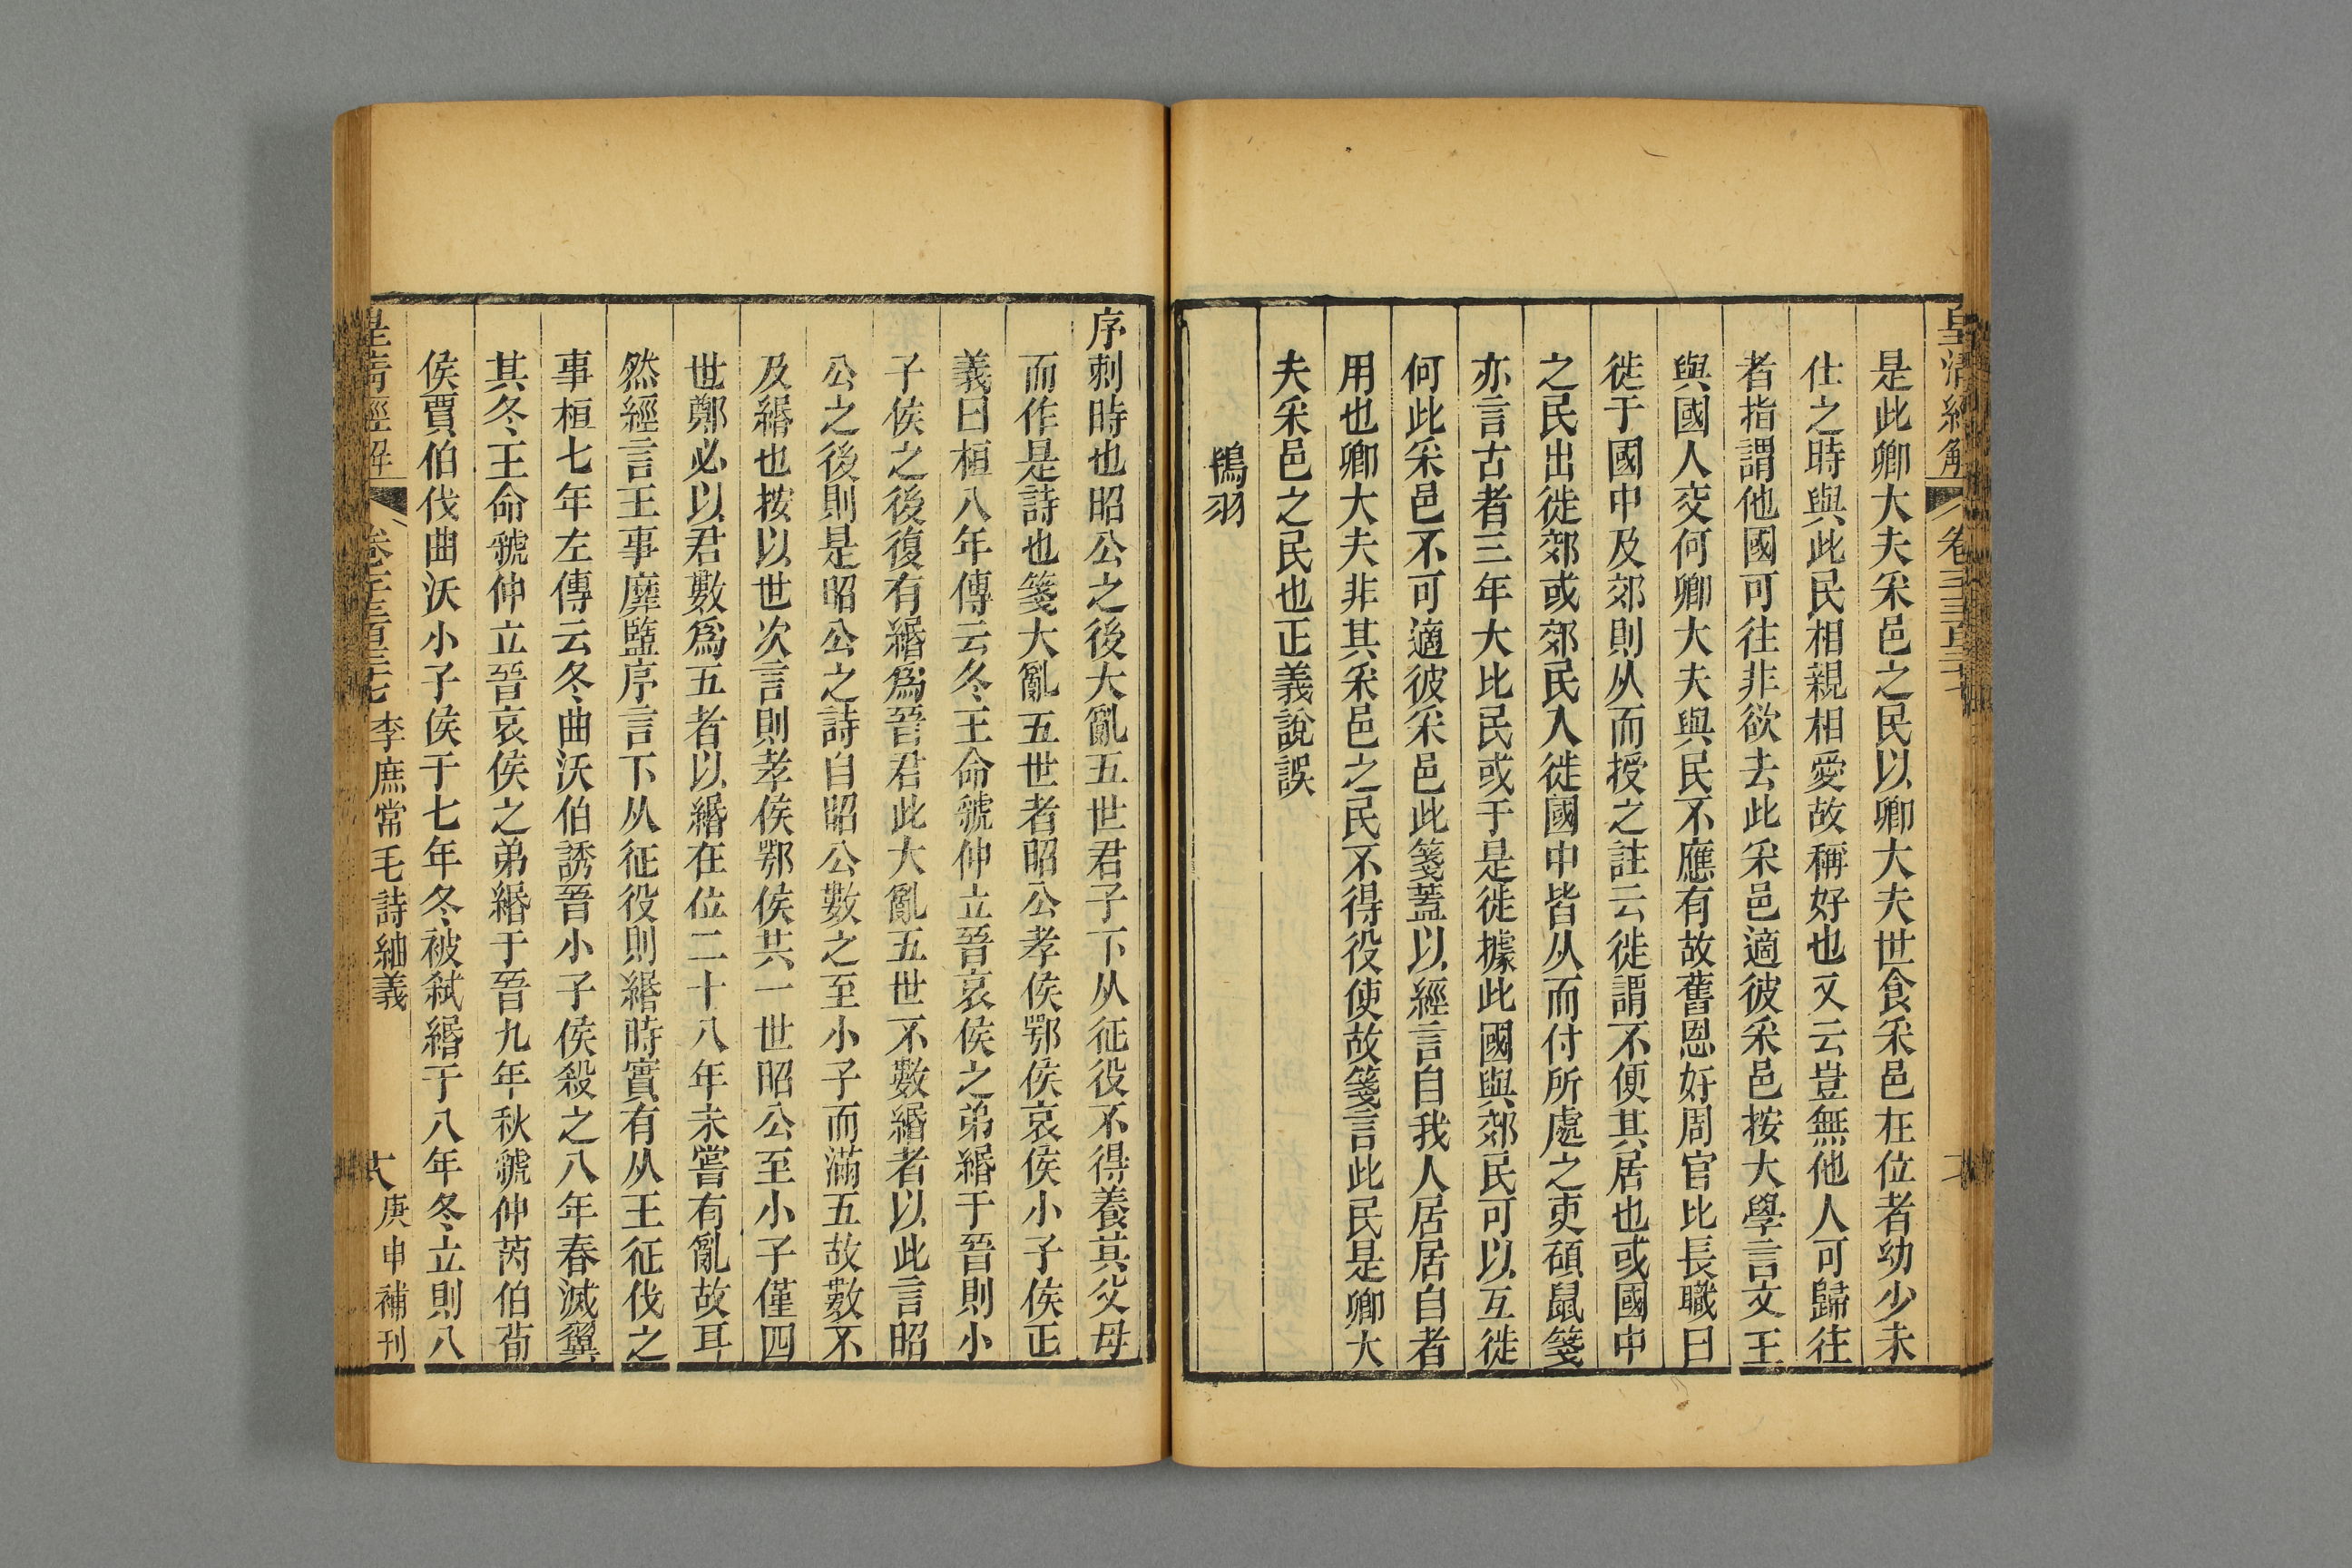 皇清經解 卷
是此卿大夫采邑之民以卿大夫世食采邑在位者幼少未
仕之時與此民相親相愛故稱好也又云豈無他人可歸往
者指謂他國可往非欲去此采邑適彼采邑按大學言文王
與國人交何卿大夫與民不應有故舊恩好周官比長職曰
徙于國中及郊則从而授之註云徙謂不便其居也或國中
之民出徙郊或郊民入徙國中皆从而付所處之吏碩鼠箋
亦言古者三年大比民或于是徙據此國與郊民可以互徙
何此采邑不可適彼采邑此箋蓋以經言自我人居居自者
用也卿大夫非其采邑之民不得役使故箋言此民是卿大
夫采邑之民也正義說誤
鴇羽
序刺時也昭公之後大亂五世君子下从征役不得養其父母
而作是詩也箋大亂五世者昭公孝侯鄂侯哀侯小子侯正
義曰桓八年傳云冬王命虢仲立晉哀侯之弟緡于晉則小
子侯之後復有緡爲晉君此大亂五世不數緡者以此言昭
公之後則是昭公之詩自昭公數之至小子而滿五故數不
及緡也按以世次言則孝侯鄂侯共一世昭公至小子僅四
世鄭必以君數爲五者以緡在位二十八年未嘗有亂故耳
然經言王事靡盬序言下从征役則緡時實有从王征伐之
事桓七年左傳云冬曲沃伯誘晉小子侯殺之八年春滅翼
其冬王命虢仲立晉哀侯之弟緡于晉九年秋虢仲芮伯荀
侯賈伯伐曲沃小子侯于七年冬被弑緡于八年冬立則八
皇清經解 卷 李庶常毛詩紬義 庚申補刊